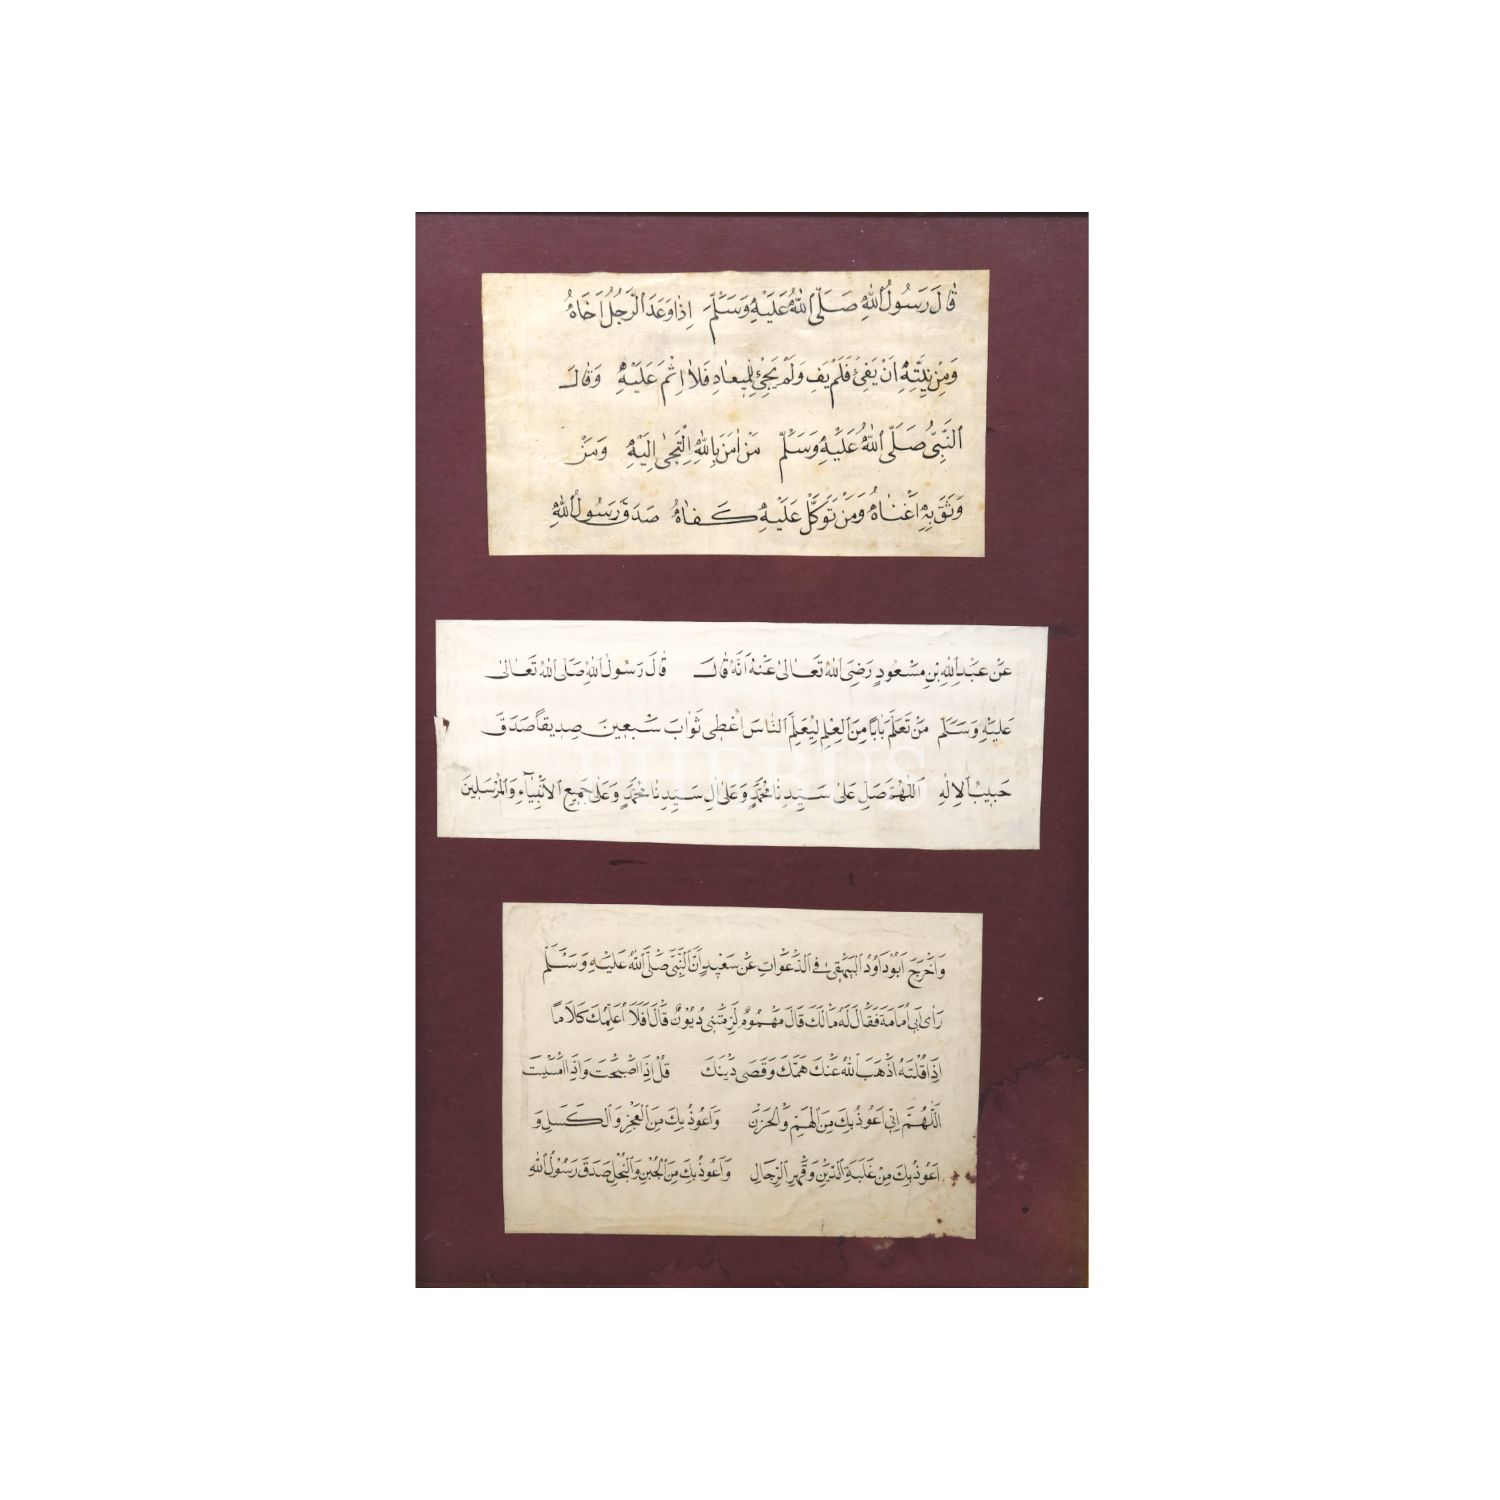 قَالَ رَسُولُ اللهِ صَلَّى اللهُ عَلَيْهِ وَسَلَّمَ اِذَا وَعَدَ الرَّجُلُ اَخَاهُ
وَمِنْ نِيَّتِهِ اَنْ يَفِىَٔ فَلَمْ يَفِ وَلَمْ يَجِئْ لِلْمِيعَادِ فَلَا اِثْمَ عَلَيْهِ وَقَالَ
النَّبِىُّ صَلَّى اللهُ عَلَيْهِ وَسَلَّمَ مَنْ اٰمَنَ بِاللهِ اِلْتَجٰى اِلَيْهِ وَمَنْ
وَثَقَ بِهِ اَغْنَاهُ وَمَنْ تَوَكَّلَ عَلَيْهِ كَفَاهُ صَدَقَ رَسُولُ اللهِ
عَنْ عَبْدِ اللهِ بْنِ مَسْعُودٍ رَضِىَ اللهُ تَعَالٰى عَنْهُ اَنَّهُ قَالَ قَالَ رَسُولُ اللهِ صَلَّى اللهُ تَعَالٰى
عَلَيْهِ وَسَلَّمَ مَنْ تَعَلَّمَ بَابًا مِنَ الْعِلْمِ لِيُعَلِّمَ النَّاسَ اُعْطِىَ ثَوَابَ سَبْعِينَ صِدِيقًا صَدَقَ
حَبِيبُ الْاِلٰهِ اَللّٰهُمَّ صَلِّ عَلٰى سَيِّدِنَا مُحَمَّدٍ وَعَلٰى اٰلِ سَيِّدِنَا مُحَمَّدٍ وَعَلٰى جَمِيعِ الْاَنْبِيَآءِ وَالْمُرْسَلِينَ
PHEBUS
وَاَخْرَجَ اَبُو دَاوُدَ الْبَيْهَقِىُّ فِى الدَّعَوَاتِ عَنْ سَعِيدٍ اَنَّ النَّبِىَّ صَلَّى اللهُ عَلَيْهِ وَسَلَّمَ
رَاٰى اَبِى اُمَامَةَ فَقَالَ لَهُ مَالَكَ قَالَ هُمُومٌ لَزِمَتْنِى دُيُونٌ قَالَ اَفَلَا اُعَلِّمُكَ كَلَامًا
اِذَا قُلْتَهُ اَذْهَبَ اللهُ عَنْكَ هَمَّكَ وَقَضَى دَيْنَكَ قُلْ اِذَا اَصْبَحْتَ وَاِذَا اَمْسَيْتَ
اَللّٰهُمَّ اِنِّى اَعُوذُ بِكَ مِنَ الْهَمِّ وَالْحَزَنْ وَاَعُوذُ بِكَ مِنَ الْعَجْزِ وَالْكَسَلِ وَ
اَعُوذُ بِكَ مِنْ غَلَبَةِ الدَّيْنِ وَقَهْرِ الرِّجَالِ وَاَعُوذُ بِكَ مِنَ الْجُبْنِ وَالْبُخْلِ صَدَقَ رَسُولُ اللهِ